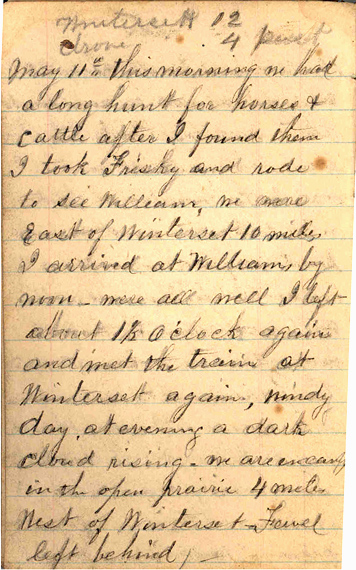 Winterset 12
drove 4 past
May 11th this morning we had
a long hunt for horses &
cattle after I found them
I took Frisky and rode
to see William, we were
East of Winterset 10 miles
I arrived at Williams by
noon - were all well I left
about 1½ O'clock again
and met the train at
Winterset again, windy
day. at evening a dark
cloud rising - we are encamp
in the open prairie 4 miles
West of Winterset - Fewel
left behind, -